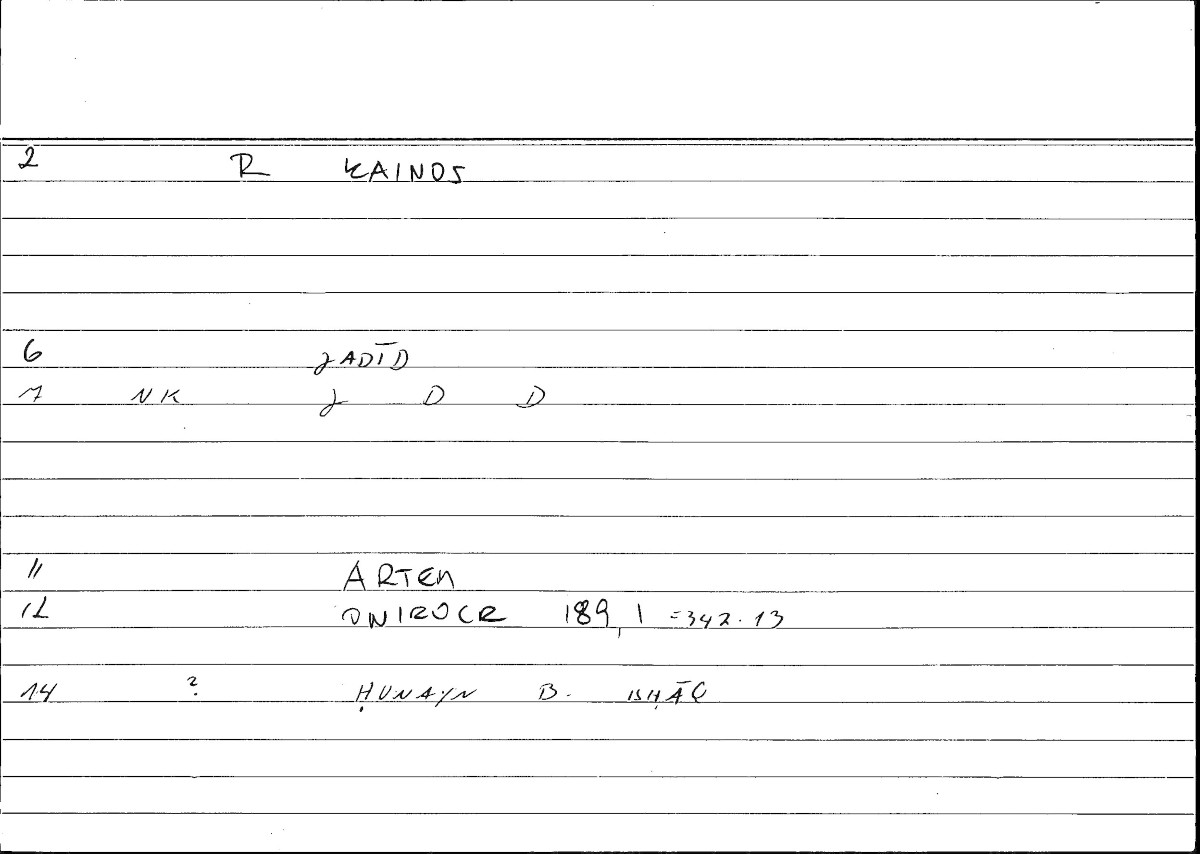 2 R KAINOS
6 JADĪD
7 NK J D D
11 ARTEM
12 ONIROCR 189,1 =342.13
14 ? ḤUNAYN B. ISḤĀQ